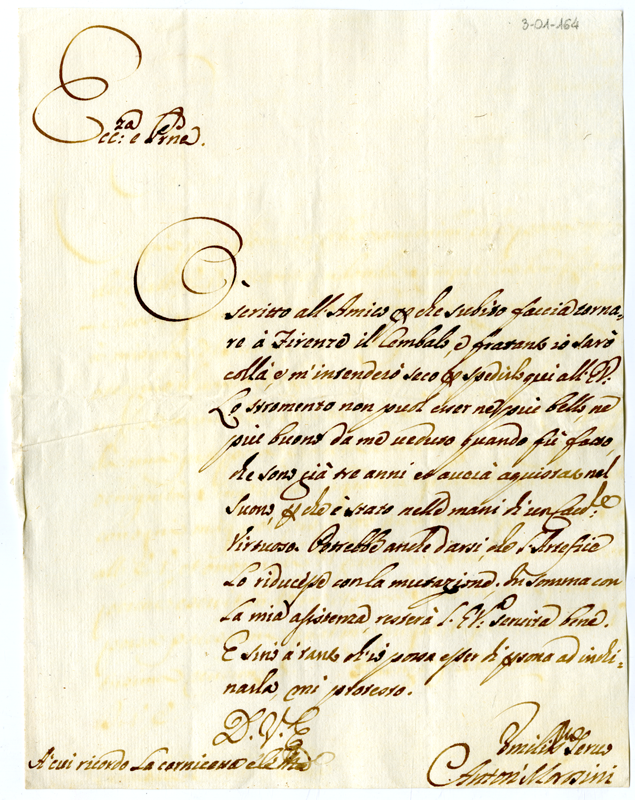 3-01-164
Ecc:za e Prne.
Ò scritto all'Amico che subito faccia torna,
re à Firenze il Cembalo, e fratanto io sarò
collà e m'intenderò seco spedirlo qui all'E.V.
Lo stromento non può esser ne più bello, ne
più buono da me ueduto quando fù fatto,
che sono già tre anni et aurà aquistato nel
suono che è stato nelle mani di un
Virtuoso. Potrebbe anche darsi che l'Artefice
lo riducesse con la mutazione. In somma con
la mia assistenza, resterà l'E.V. seruita bene.
E sino à tanto ch'io possa esser di psona ad inchi=
narla, mi protesto.
D. V. E.
A' cui ricordo la
Vmiliss. Seruo
Anton' Massini